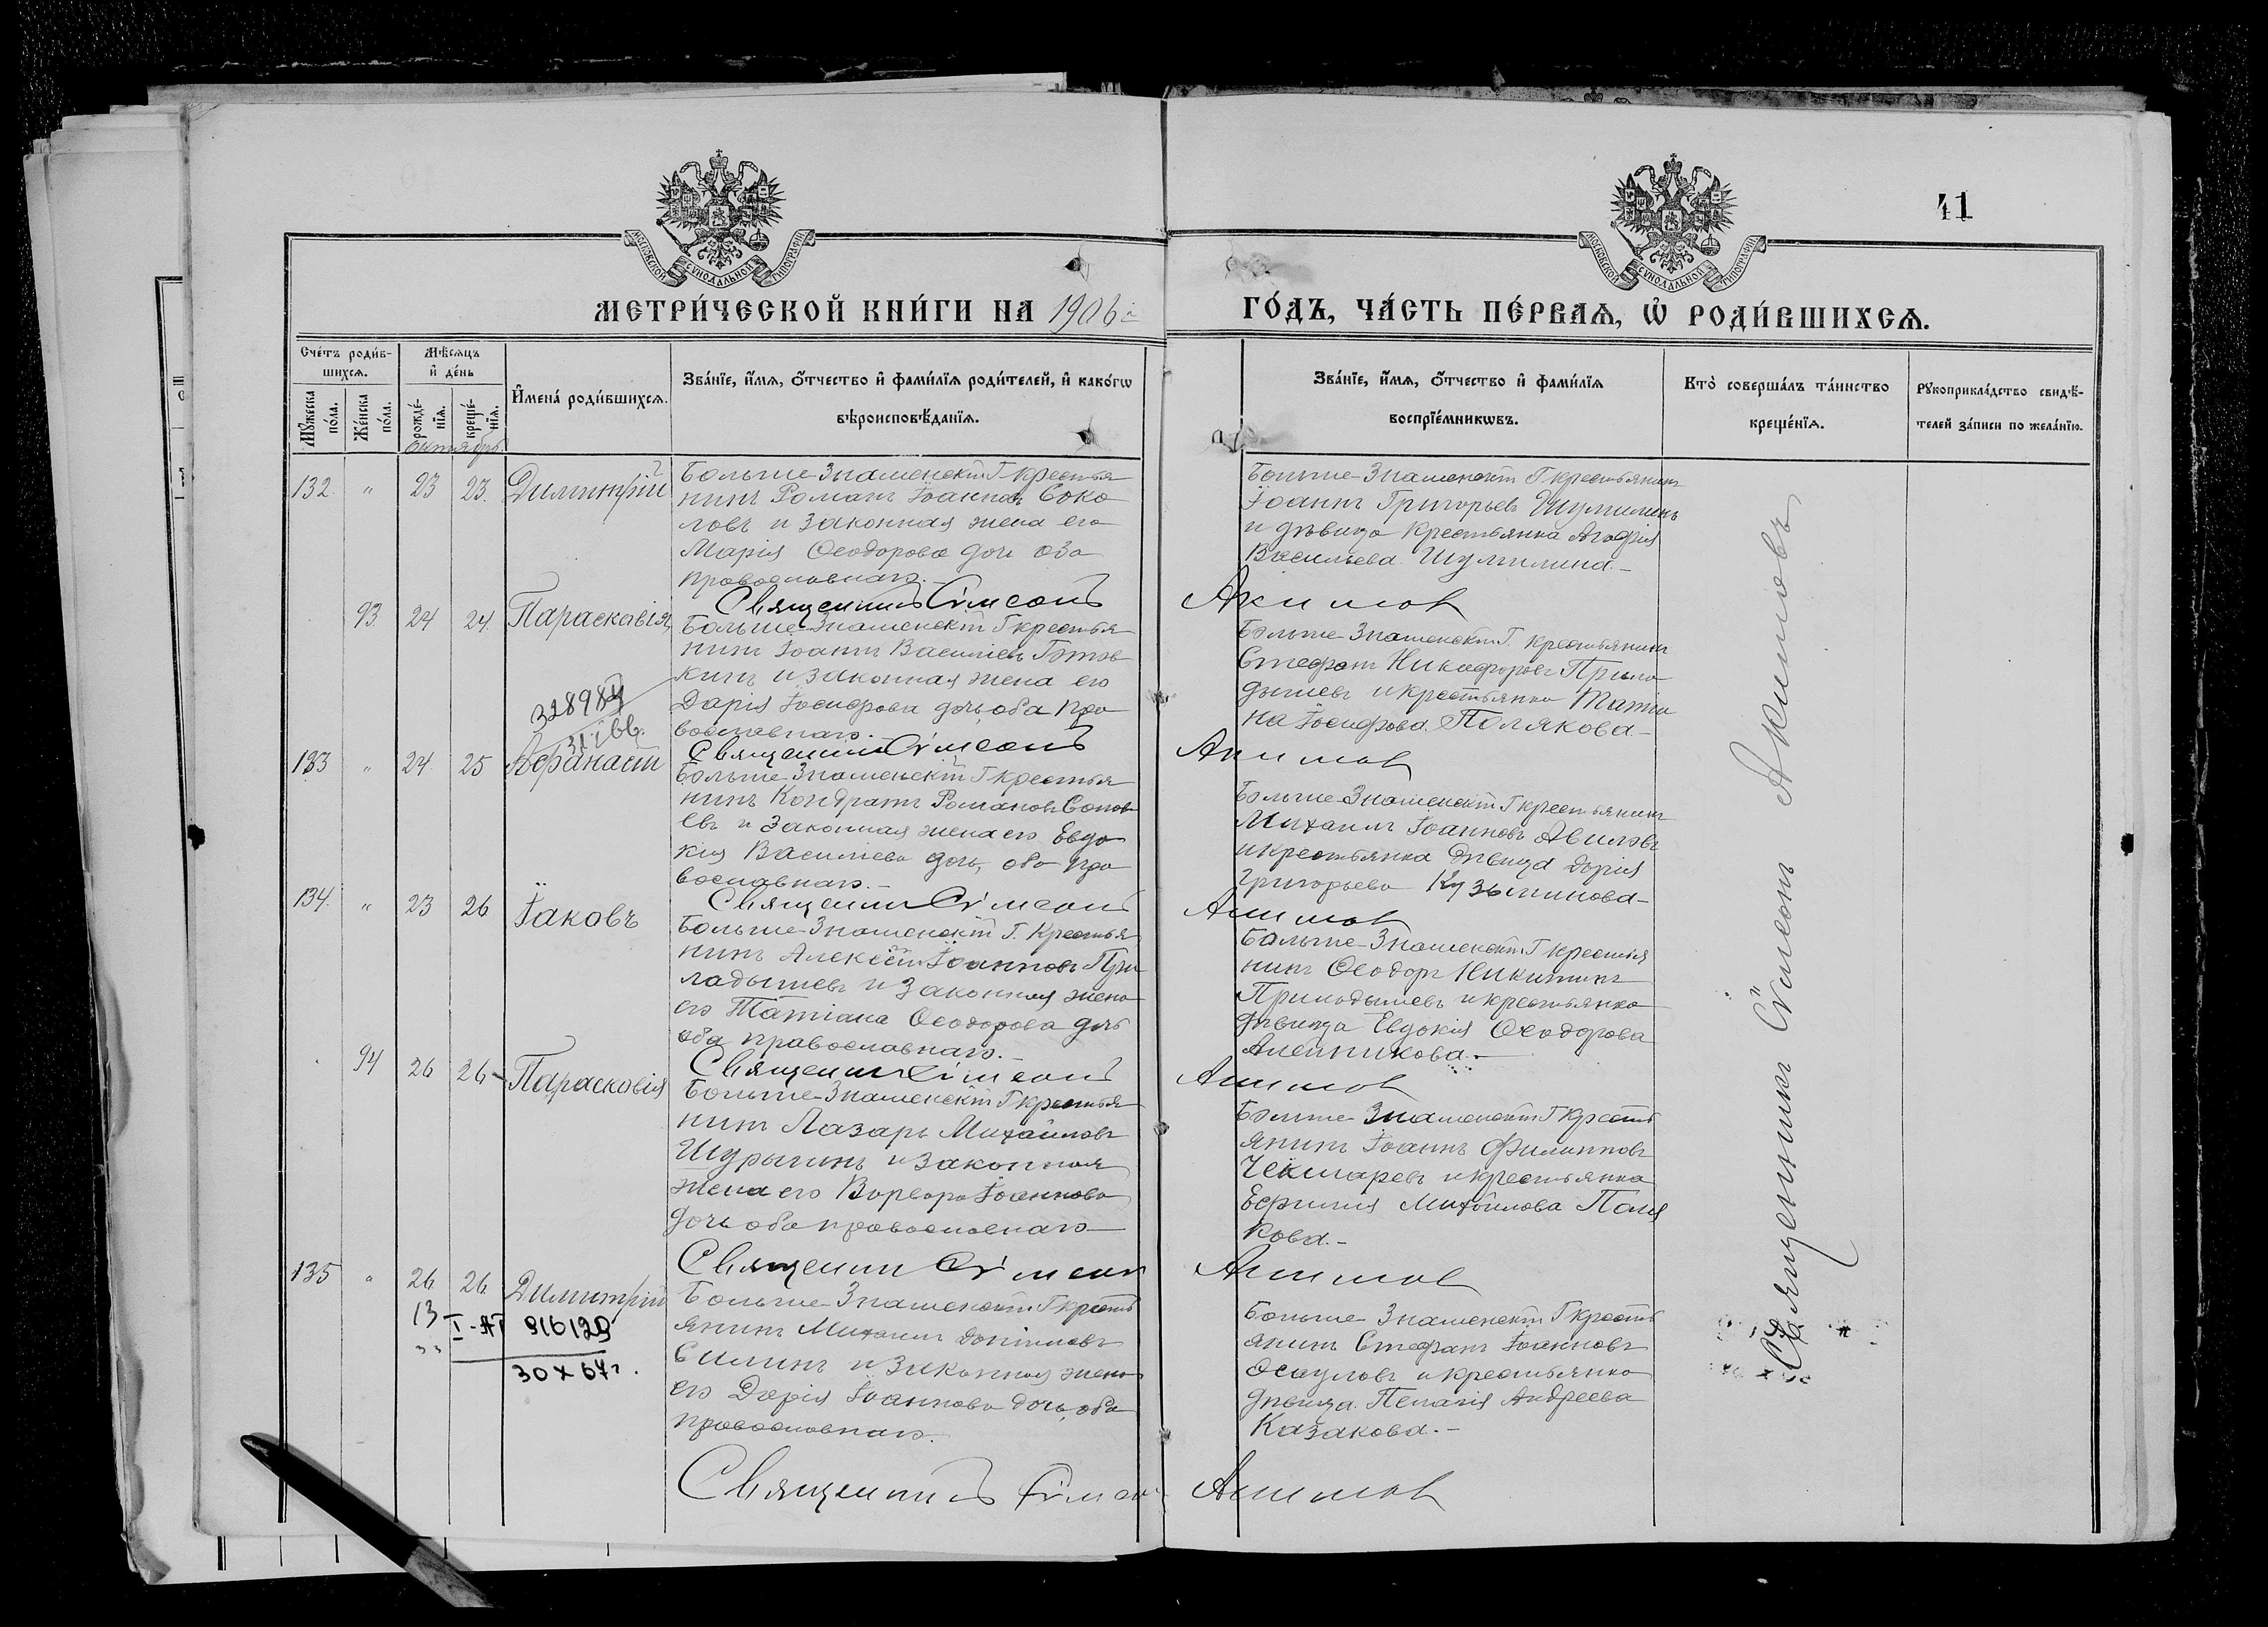 41
МОСКОВСКОЙ СѴНОДАЛЬНОЙ ТИПОГРАФІИ
МОСКОВСКОЙ СѴНОДАЛЬНОЙ ТИПОГРАФІИ
МЕТРИ́ЧЕСКОЙ КНИ́ГИ НА 1906й
ГО́ДЪ, ЧА́СТЬ ПЕ́РВАѦ, Ѡ҆ РОДИ́ВШИХСѦ.
Сче́тъ роди́в-
шихсѧ.
Мѣ́сѧцъ
и҆ де́нь
Мꙋ́жеска по́ла.
Же́нска по́ла.
рожде́-
нїѧ.
креще́-
нїѧ.
И҆мена̀ роди́вшихсѧ.
Зва́нїе, и҆́мѧ, ѻ҆́тчество и҆ фами́лїѧ роди́телей, и҆ како́гѡ
вѣроисповѣ́данїѧ.
Зва́нїе, и҆́мѧ, ѻ҆́тчество и҆ фами́лїѧ
воспрїе́мникѡвъ.
Кто̀ соверша́лъ та́инство
креще́нїѧ.
Рꙋкоприкла́дство свидѣ́-
телей за́писи по жела́нїю.
октябрь
132. " 23 23. Димитрій
Больше-Знаменскій крестья
нинъ Романъ Іоанновъ Соко
ловъ и законная жена его
Марія Ѳеодорова дочь оба
православнаго.
Священникъ Сѵмеонъ Акимов
Больше-Знаменскій крестьянинъ
Іоаннъ Григорьевъ Шумилинъ
и дѣвица крестьянка Агафія
Васильева Шумилина.-
93. 24 24. Параскавія
Больше-Знаменскій крестья
нинъ Іоаннъ Василіевъ Готов
кинъ и законная жена его
Дарія Іосифова дочь, оба пра
вославнаго.-
Священник Сѵмеонъ Акимов
Больше-Знаменскій крестьянинъ
Стефанъ Никифоровъ Прила
дышевъ и крестьянка Татіа
на Іосифова Полякова-
328984
133 " 24. 25 Афанасій
Больше-Знаменскій крестья
нинъ Кондратъ Романовъ Солов
евъ и законная жена его Евдо
кія Василіева дочь, оба пра
вославнаго.-
Священник Сѵмеонъ Акимов
Больше-Знаменскій крестьянинъ
Михаилъ Іоанновъ Авиловъ
и крестьянка дѣвица Дарія
Григорьева Кузьминова-
134. " 23 26 Іаковъ
Больше-Знаменскій крестья
нинъ Алексѣй Іоанновъ При
ладышевъ и законная жена
его Татіана Ѳеодорова дочь
оба православнаго.-
Священник Сѵмеонъ Акимов
Больше-Знаменскій крестья
нинъ Ѳеодоръ Никитинъ
Приладышевъ и крестьянка
дѣвица Евдокія Ѳеодорова
Алейникова.-
94 26 26 Параскавія
Больше-Знаменскій крестья
нинъ Лазарь Михайловъ
Шурыгинъ и законная
жена его Варвара Іоаннова
дочь оба православнаго-
Священник Сѵмеонъ Акимов
Больше-Знаменскій кресть
янинъ Іоаннъ Филипповъ
Чекмаревъ и крестьянка
Ефимія Михайлова Поля
кова.-
135 " 26 26. Димитрій
Больше-Знаменскій кресть
янинъ Михаилъ Даніиловъ
Силинъ и законная жена
его Дарія Іоаннова дочь, оба
православнаго.
Священникъ Сѵмеон Акимов
Больше-Знаменскій кресть
янинъ Стефанъ Іоанновъ
Осауловъ и крестьянка
дѣвица Пелагія Андреева
Казакова.-
916129
30 X 67г.
Священникъ Сѵмеонъ Акимовъ